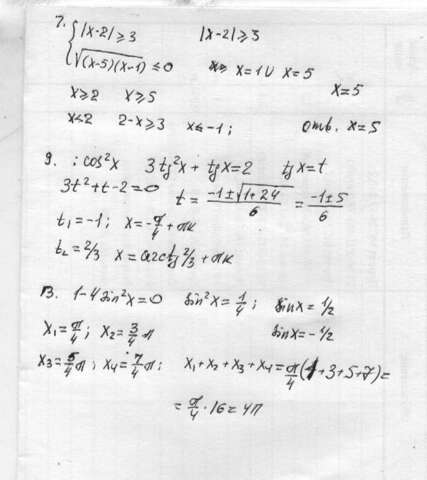 7. { |x-2| ≥ 3   |x-2| ≥ 3
√(x-5)(x-1) ≤ 0   x=1 ∪ x=5
x=5
x≥2   x≥5
x<2   2-x≥3   x≤-1;   Отв. x=5
9. : cos²x   3tg²x + tgx = 2   tgx=t
3t²+t-2=0   t = (-1±√1+24)/6 = (-1±5)/6
t₁=-1;   x=-π/4+πк
t₂=2/3   x=arctg 2/3+πк
13. 1-4sin²x=0   sin²x=1/4;   sinx=1/2
x₁=π/4; x₂=3/4 π   sinx=-1/2
x₃=5/4 π; x₄=7/4 π;   x₁+x₂+x₃+x₄=π/4(1+3+5+7)=
= π/4 · 16 = 4π